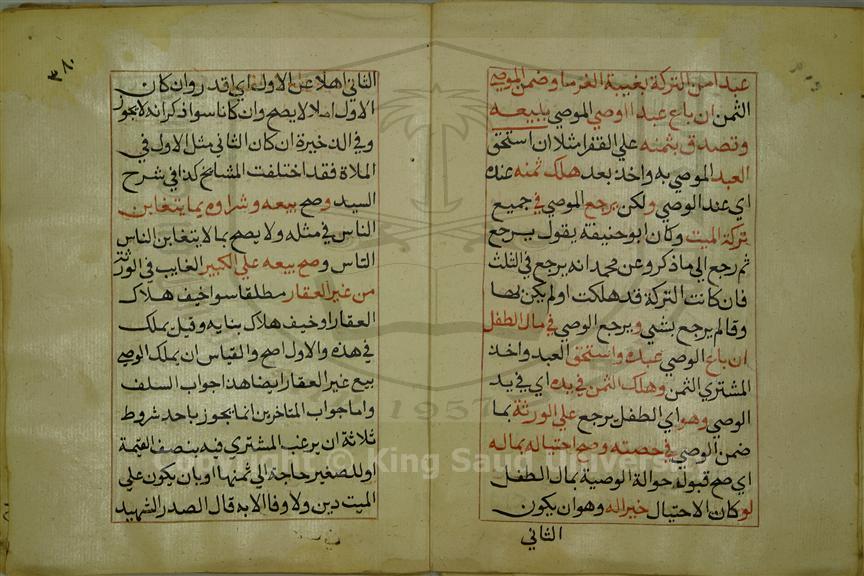 عبدا من التركة بغيبة الغرما وضمن الموصي
الثمن ان باع عبدا اوصي الموصي ببيعه
وتصدق بثمنه علي الفقرا مثلا ان استحق
العبد الموصي به واخذ بعد هلك ثمنه عنده
اي عند الوصي ولكن يرجع الموصي في جميع
تركة الميت وكان ابو حنيفة يقول يرجع
ثم رجع الي ما ذكر وعن محمد انه يرجع في الثلث
فان كانت التركة قد هلكت او لم يكن بها
وقالم يرجع بشي ويرجع الوصي في مال الطفل
ان باع الوصي عبده واستحق العبد واخذ
المشتري الثمن وهلك الثمن في يده اي في يد
الوصي وهو اي الطفل يرجع علي الورثة بما
ضمن الوصي في حصته وصح احتياله بماله
اي صح قبول حوالة الوصية بمال الطفل
لو كان الاحتيال خيرا له وهو ان يكون
الثاني
٣٨٠
الثاني اهلا عن الاول اي اقدر وان كان
الاول املا لا يصح وان كانا سوا ذكر انه لا يجوز
وفي الذخيرة ان كان الثاني مثل الاول في
الملاة فقد اختلفت المشايخ كذا في شرح
السيد وصح بيعه وشراوه بما يتغابن
الناس في مثله ولا يصح بما لا يتغابن الناس
الناس وصح بيعه علي الكبير الغايب في الورثة
من غير العقار مطلقا سوا خيف هلاك
العقار او خيف هلاك بنايه وقيل يملك
في هذه والاول اصح والقياس ان يملك الوصي
بيع غير العقار ايضا هذا جواب السلف
واما جواب المتاخرين انما يجوز باحد شروط
ثلاثة ان يرغب المشتري فيه بنصف القيمة
او للصغير حاجة الي ثمنها او بان يكون علي
الميت دين ولا وفا الا به قال الصدر الشهيد
Copyright © King Saud University
1957